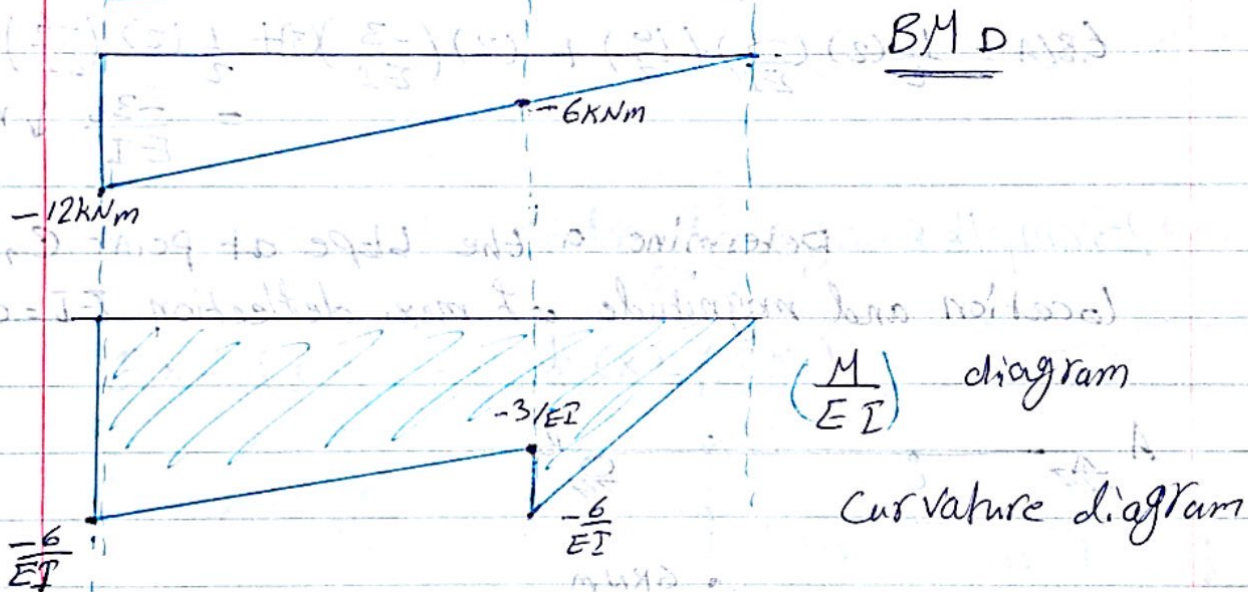 BMD
-6kNm
-12kNm
-3/EI
(M/EI) diagram
-6/EI
-6/EI
Curvature diagram